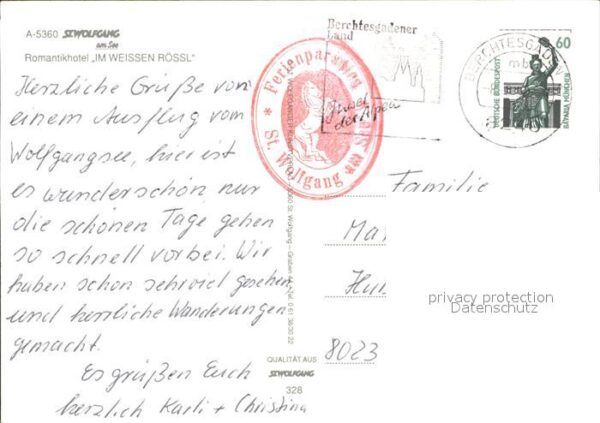 A-5360 ST. WOLFGANG
am See
Romantikhotel „IM WEISSEN RÖSSL"
Herzliche Grüße von
einem Ausflug vom
Wolfgangsee, hier ist
es wunderschön, nur
die schönen Tage gehen
so schnell vorbei. Wir
haben schon sehr viel gesehen
und herrliche Wanderungen
gemacht.
Es grüßen Euch
herzlich Karli + Christina
* Ferienparadies *
St. Wolfgang am See
QUALITÄT AUS
ST. WOLFGANG
328
Berchtesgadener
Land
Insel
der Alpen
BERCHTESGADEN
mb
60
DEUTSCHE BUNDESPOST
BAVARIA MÜNCHEN
Familie
Ma
8023
privacy protection
Datenschutz